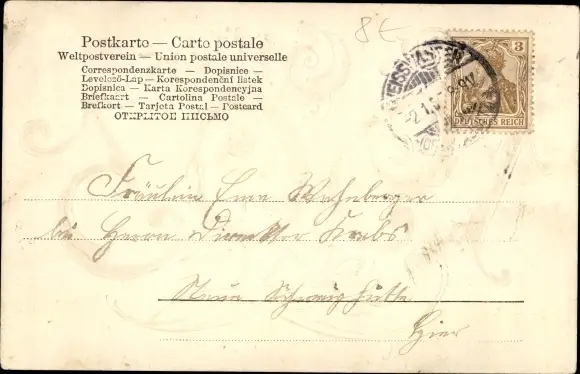 8 €
Postkarte — Carte postale
Weltpostverein — Union postale universelle
Correspondenzkarte — Dopisnice —
Levelező-Lap — Korespondenční listek
Dopisnica — Karta Korespondencyjna
Briefkaart — Cartolina Postale —
Brefkort — Tarjeta Postal — Postcard
ОТКРЫТОЕ ПИСЬМО
3
DEUTSCHES REICH
Fräulein
bei Herrn Direktor Krebs
Neue
Hier